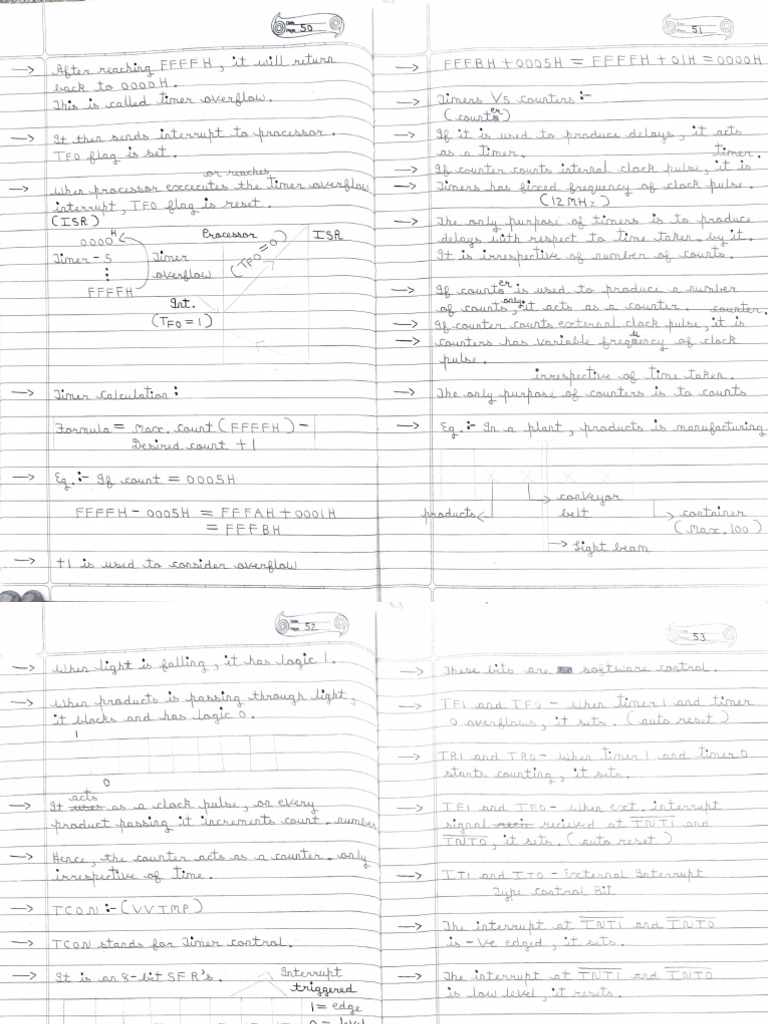 50
→ After reaching FFFFH, it will return
back to 0000H.
This is called timer overflow.
→ It then sends interrupt to processor.
TF0 flag is set.
or reaches
→ When processor excecutes the timer overflow
interrupt, TF0 flag is reset.
(ISR)
0000H
Processor
ISR
Timer - 5
Timer
overflow
(TF0=0)
⋮
FFFFH
Int.
(TF0=1)
→ Timer Calculation:
Formula = Max. count (FFFFH) -
Desired count +1
→ Eg.:- If count = 0005H
FFFFH - 0005H = FFFAH + 0001H
= FFFBH
→ +1 is used to consider overflow
51
→ FFFBH + 0005H = FFFFH + 01H = 0000H
→ Timers Vs counters:-
(counter)
→ If it is used to produce delays, it acts
as a timer. timer.
→ If counter counts internal clock pulse, it is
→ Timers has fixed frequency of clock pulse.
(12MHz)
→ The only purpose of timers is to produce
delays with respect to time taken by it.
It is irrespective of number of counts.
→ If counter is used to produce a number
of counts only, it acts as a counter. counter.
→ If counter counts external clock pulse, it is
→ counters has variable frequency of clock
pulse.
irrespective of time taken.
→ The only purpose of counters is to counts
→ Eg.:- In a plant, products is manufacturing
products
conveyor
belt
container
(Max. 100)
→ Light beam
52
→ When light is falling, it has logic 1.
→ When products is passing through light,
it blocks and has logic 0.
1
0
acts
→ It as a clock pulse, on every
product passing it increments count. number
→ Hence, the counter acts as a counter. only
irrespective of time.
→ TCON:- (VVIMP)
→ TCON stands for Timer control.
→ It is an 8-bit SFR's.
Interrupt
triggered
1 = edge
0 = level
53
→ These bits are software control.
→ TF1 and TF0 - When timer 1 and timer
0 overflows, it sets. (auto reset)
→ TR1 and TR0 - when timer 1 and timer 0
starts counting, it sets.
→ IE1 and IE0 - When ext. interrupt
signal recieved at INT1 and
INT0, it sets. (auto reset)
→ IT1 and IT0 - External Interrupt
Type Control Bit
→ The interrupt at INT1 and INT0
is -ve edged, it sets.
→ The interrupt at INT1 and INT0
is low level, it resets.